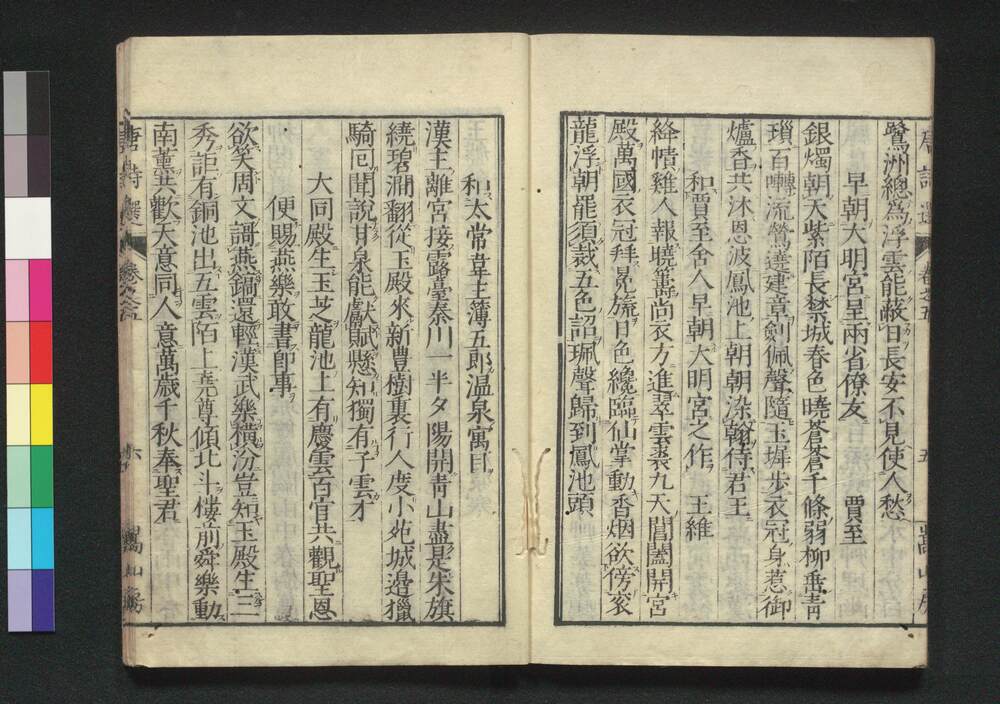 唐詩選 卷之五 五 嵩山房
鷺洲總爲浮雲能蔽日長安不見使人愁
早朝大明宮呈兩省僚友 賈至
銀燭朝天紫陌長禁城春色曉蒼蒼千條弱柳垂靑
瑣百囀流鶯遶建章劍佩聲隨玉墀步衣冠身惹御
爐香共沐恩波鳳池上朝朝染翰侍君王
和賈至舍人早朝大明宮之作 王維
絳幘雞人報曉籌尚衣方進翠雲裘九天閶闔開宮
殿萬國衣冠拜冕旒日色纔臨仙掌動香烟欲傍衮
龍浮朝罷須裁五色詔珮聲歸到鳳池頭
和太常韋主簿五郎温泉寓目
漢主離宮接露臺秦川一半夕陽開靑山盡是朱旗
繞碧澗翻從玉殿來新豊樹裏行人度小苑城邊獵
騎囘聞說甘泉能獻賦懸知獨有子雲才
大同殿生玉芝龍池上有慶雲百官共觀聖恩
便賜燕樂敢書卽事
欲笑周文謌燕鎬還輕漢武樂橫汾豈知玉殿生三
秀詎有銅池出五雲陌上堯尊傾北斗樓前舜樂動
南薰共歡天意同人意萬歲千秋奉聖君
唐詩選 卷之五 六 嵩山房